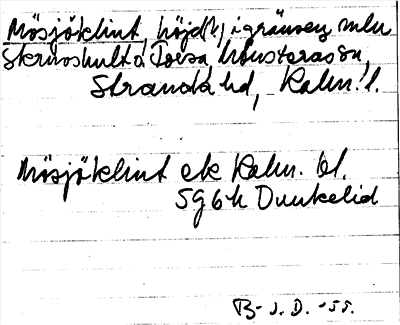 Mösjöklint, höjd, i gränsen mln
Skruvshult o Torsa Mönsterås sn,
Stranda hd, Kalm. l.
Mösjöklint ek Kalm. bl.
5G6h Dunkelid
B- J. D. -55.